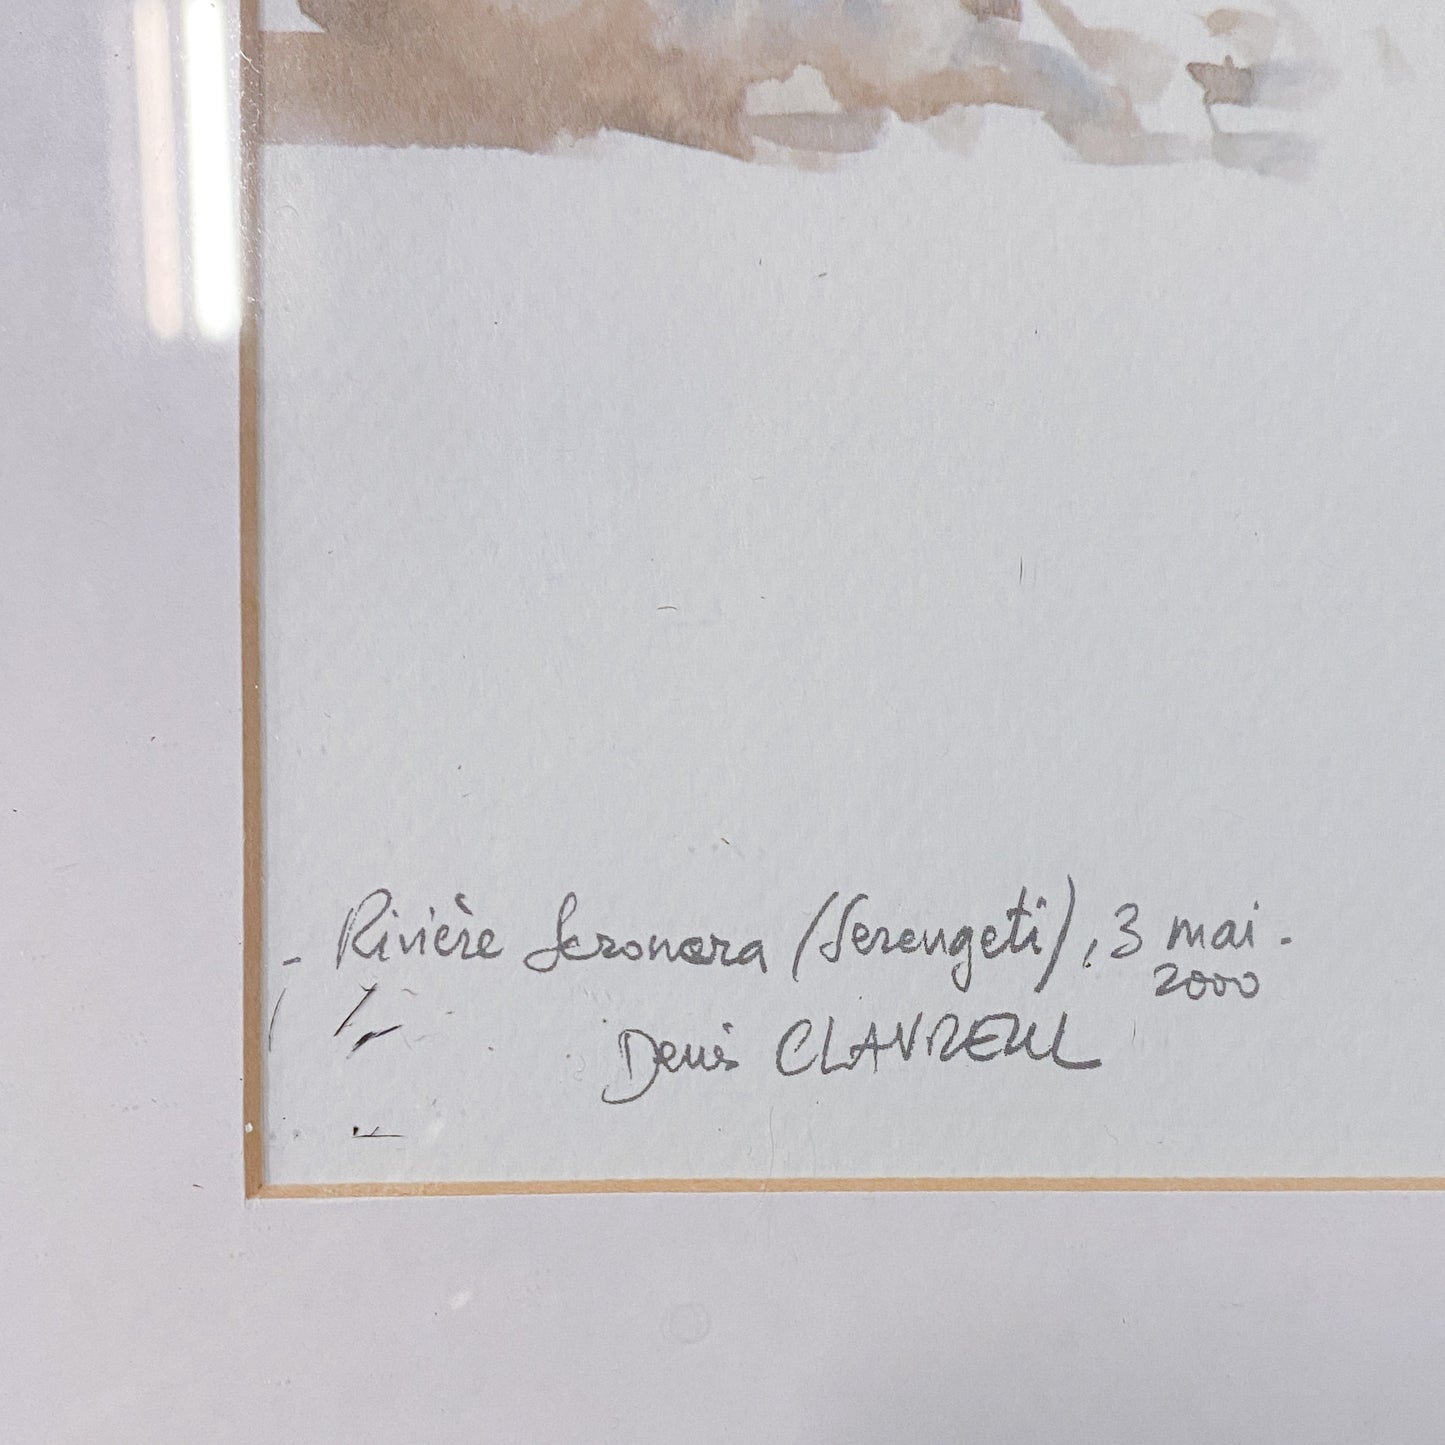 - Rivière Seronera (Serengeti), 3 mai -
2000
Denis CLAVREUL